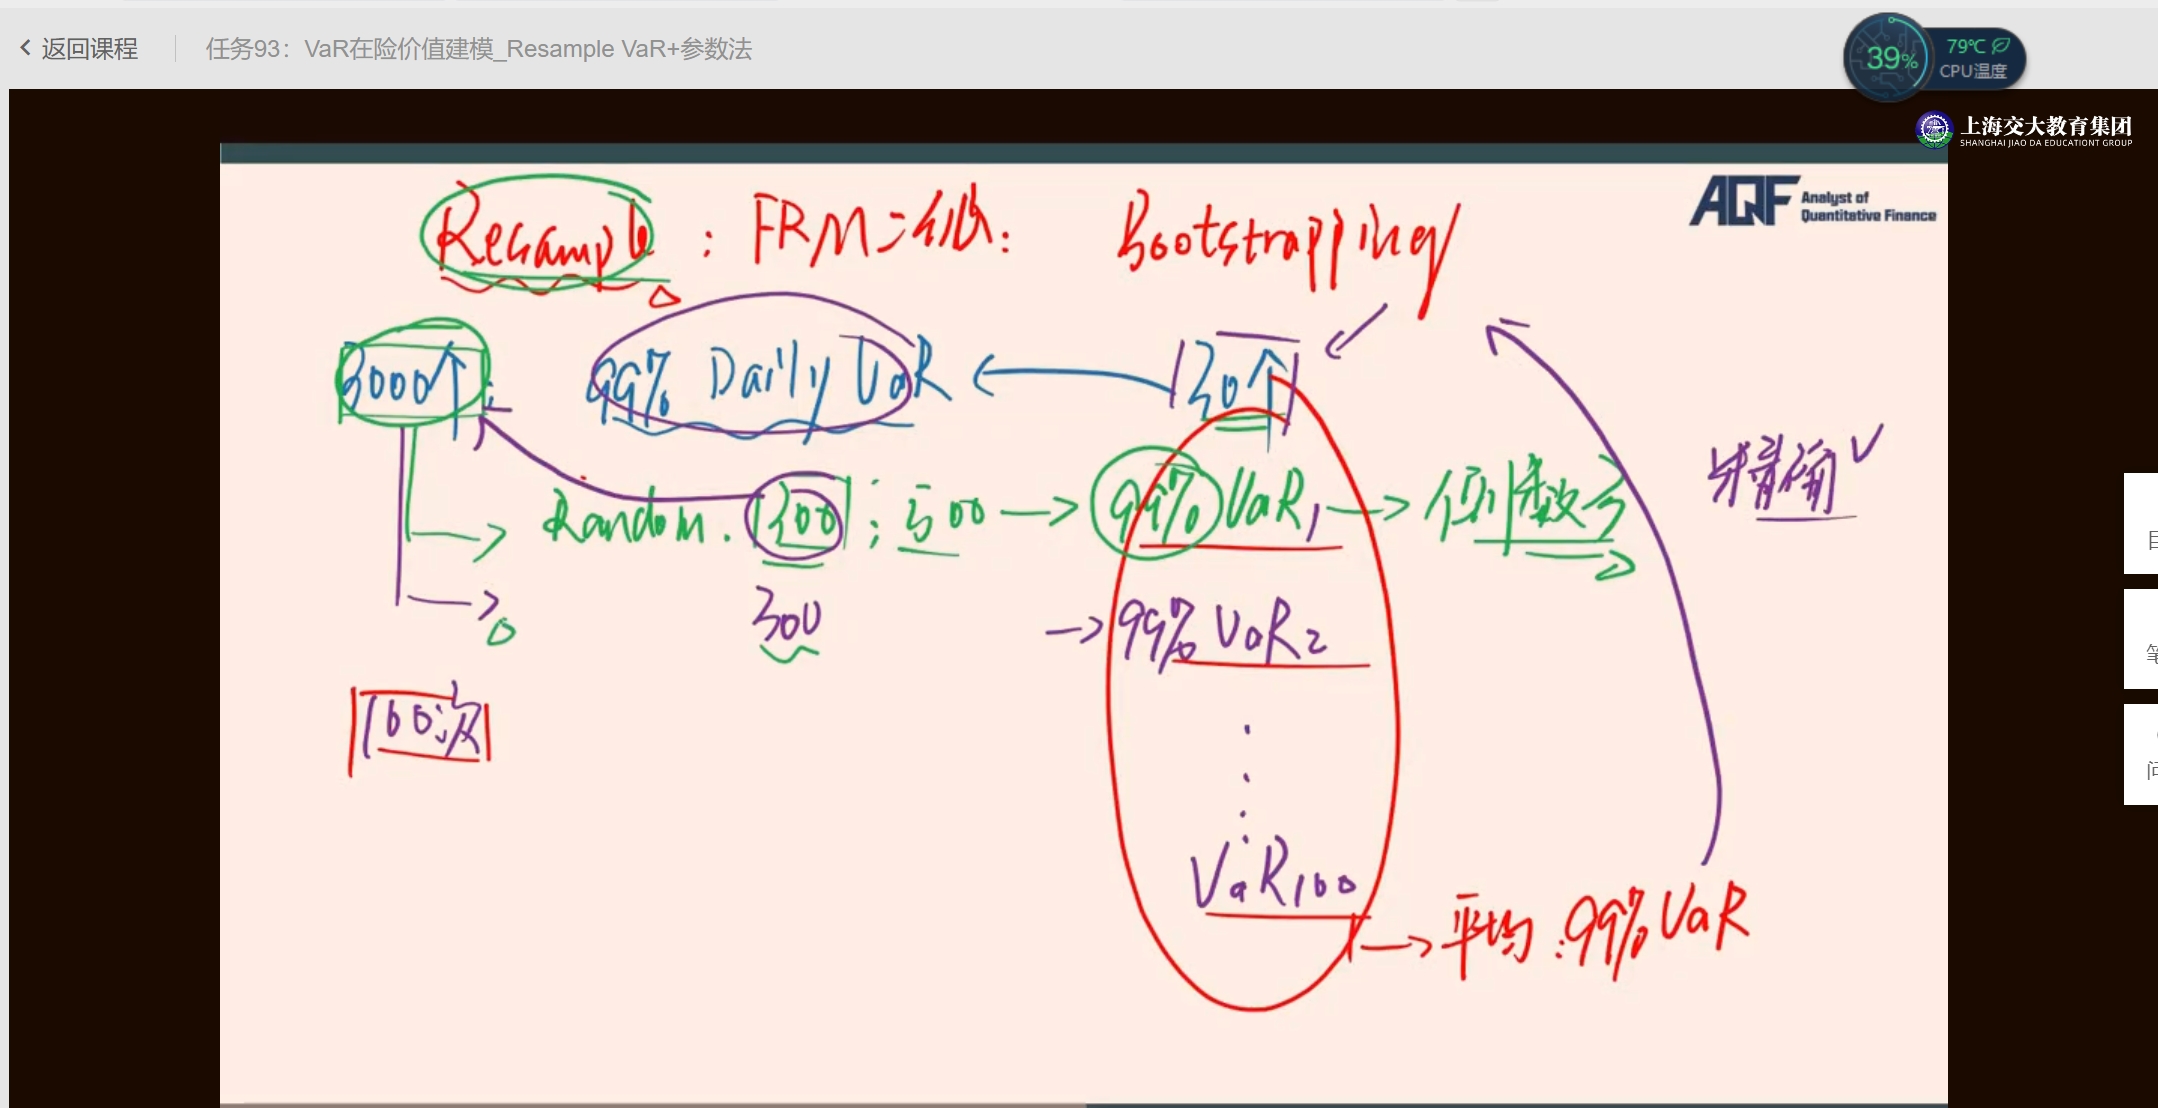 返回课程
任务93：VaR在险价值建模_Resample VaR+参数法
39%
79℃
CPU温度
上海交大教育集团
SHANGHAI JIAO DA EDUCATIONT GROUP
AQF Analyst of Quantitative Finance
Resample : FRM二级: Bootstrapping
3000个; 99% Daily VaR 30个
Random. 300 ; 500 → 99% VaR1 → 倒数
精确
300 → 99% VaR2
100次
VaR100
→ 平均:99% VaR
目
笔
问